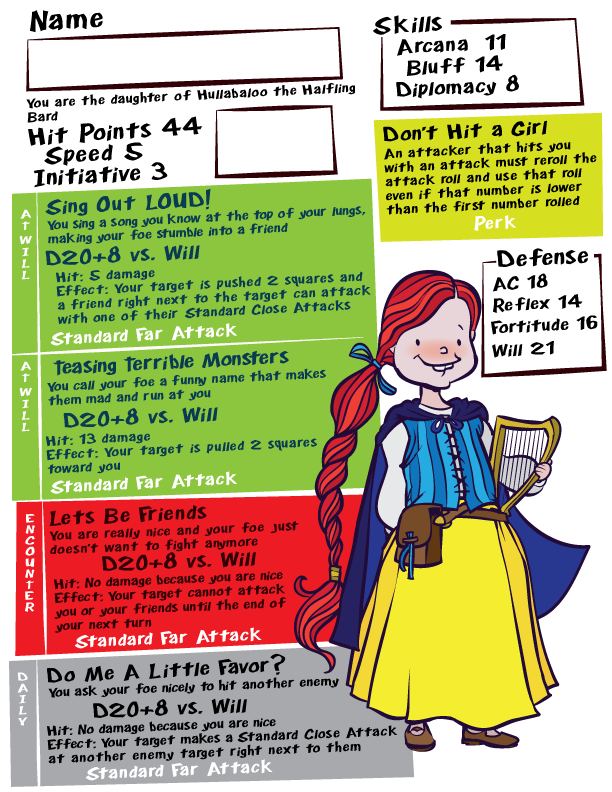 Name
You are the daughter of Hullabaloo the Halfling
Bard
Hit Points 44
Speed 5
Initiative 3
Skills
Arcana 11
Bluff 14
Diplomacy 8
Don't Hit a Girl
An attacker that hits you
with an attack must reroll the
attack roll and use that roll
even if that number is lower
than the first number rolled
Perk
Defense
AC 18
Reflex 14
Fortitude 16
Will 21
AT WILL
Sing Out LOUD!
You sing a song you know at the top of your lungs,
making your foe stumble into a friend
D20+8 vs. Will
Hit: 5 damage
Effect: Your target is pushed 2 squares and
a friend right next to the target can attack
with one of their Standard Close Attacks
Standard Far Attack
AT WILL
Teasing Terrible Monsters
You call your foe a funny name that makes
them mad and run at you
D20+8 vs. Will
Hit: 13 damage
Effect: Your target is pulled 2 squares
toward you
Standard Far Attack
ENCOUNTER
Lets Be Friends
You are really nice and your foe just
doesn't want to fight anymore
D20+8 vs. Will
Hit: No damage because you are nice
Effect: Your target cannot attack
you or your friends until the end of
your next turn
Standard Far Attack
DAILY
Do Me A Little Favor?
You ask your foe nicely to hit another enemy
D20+8 vs. Will
Hit: No damage because you are nice
Effect: Your target makes a Standard Close Attack
at another enemy target right next to them
Standard Far Attack